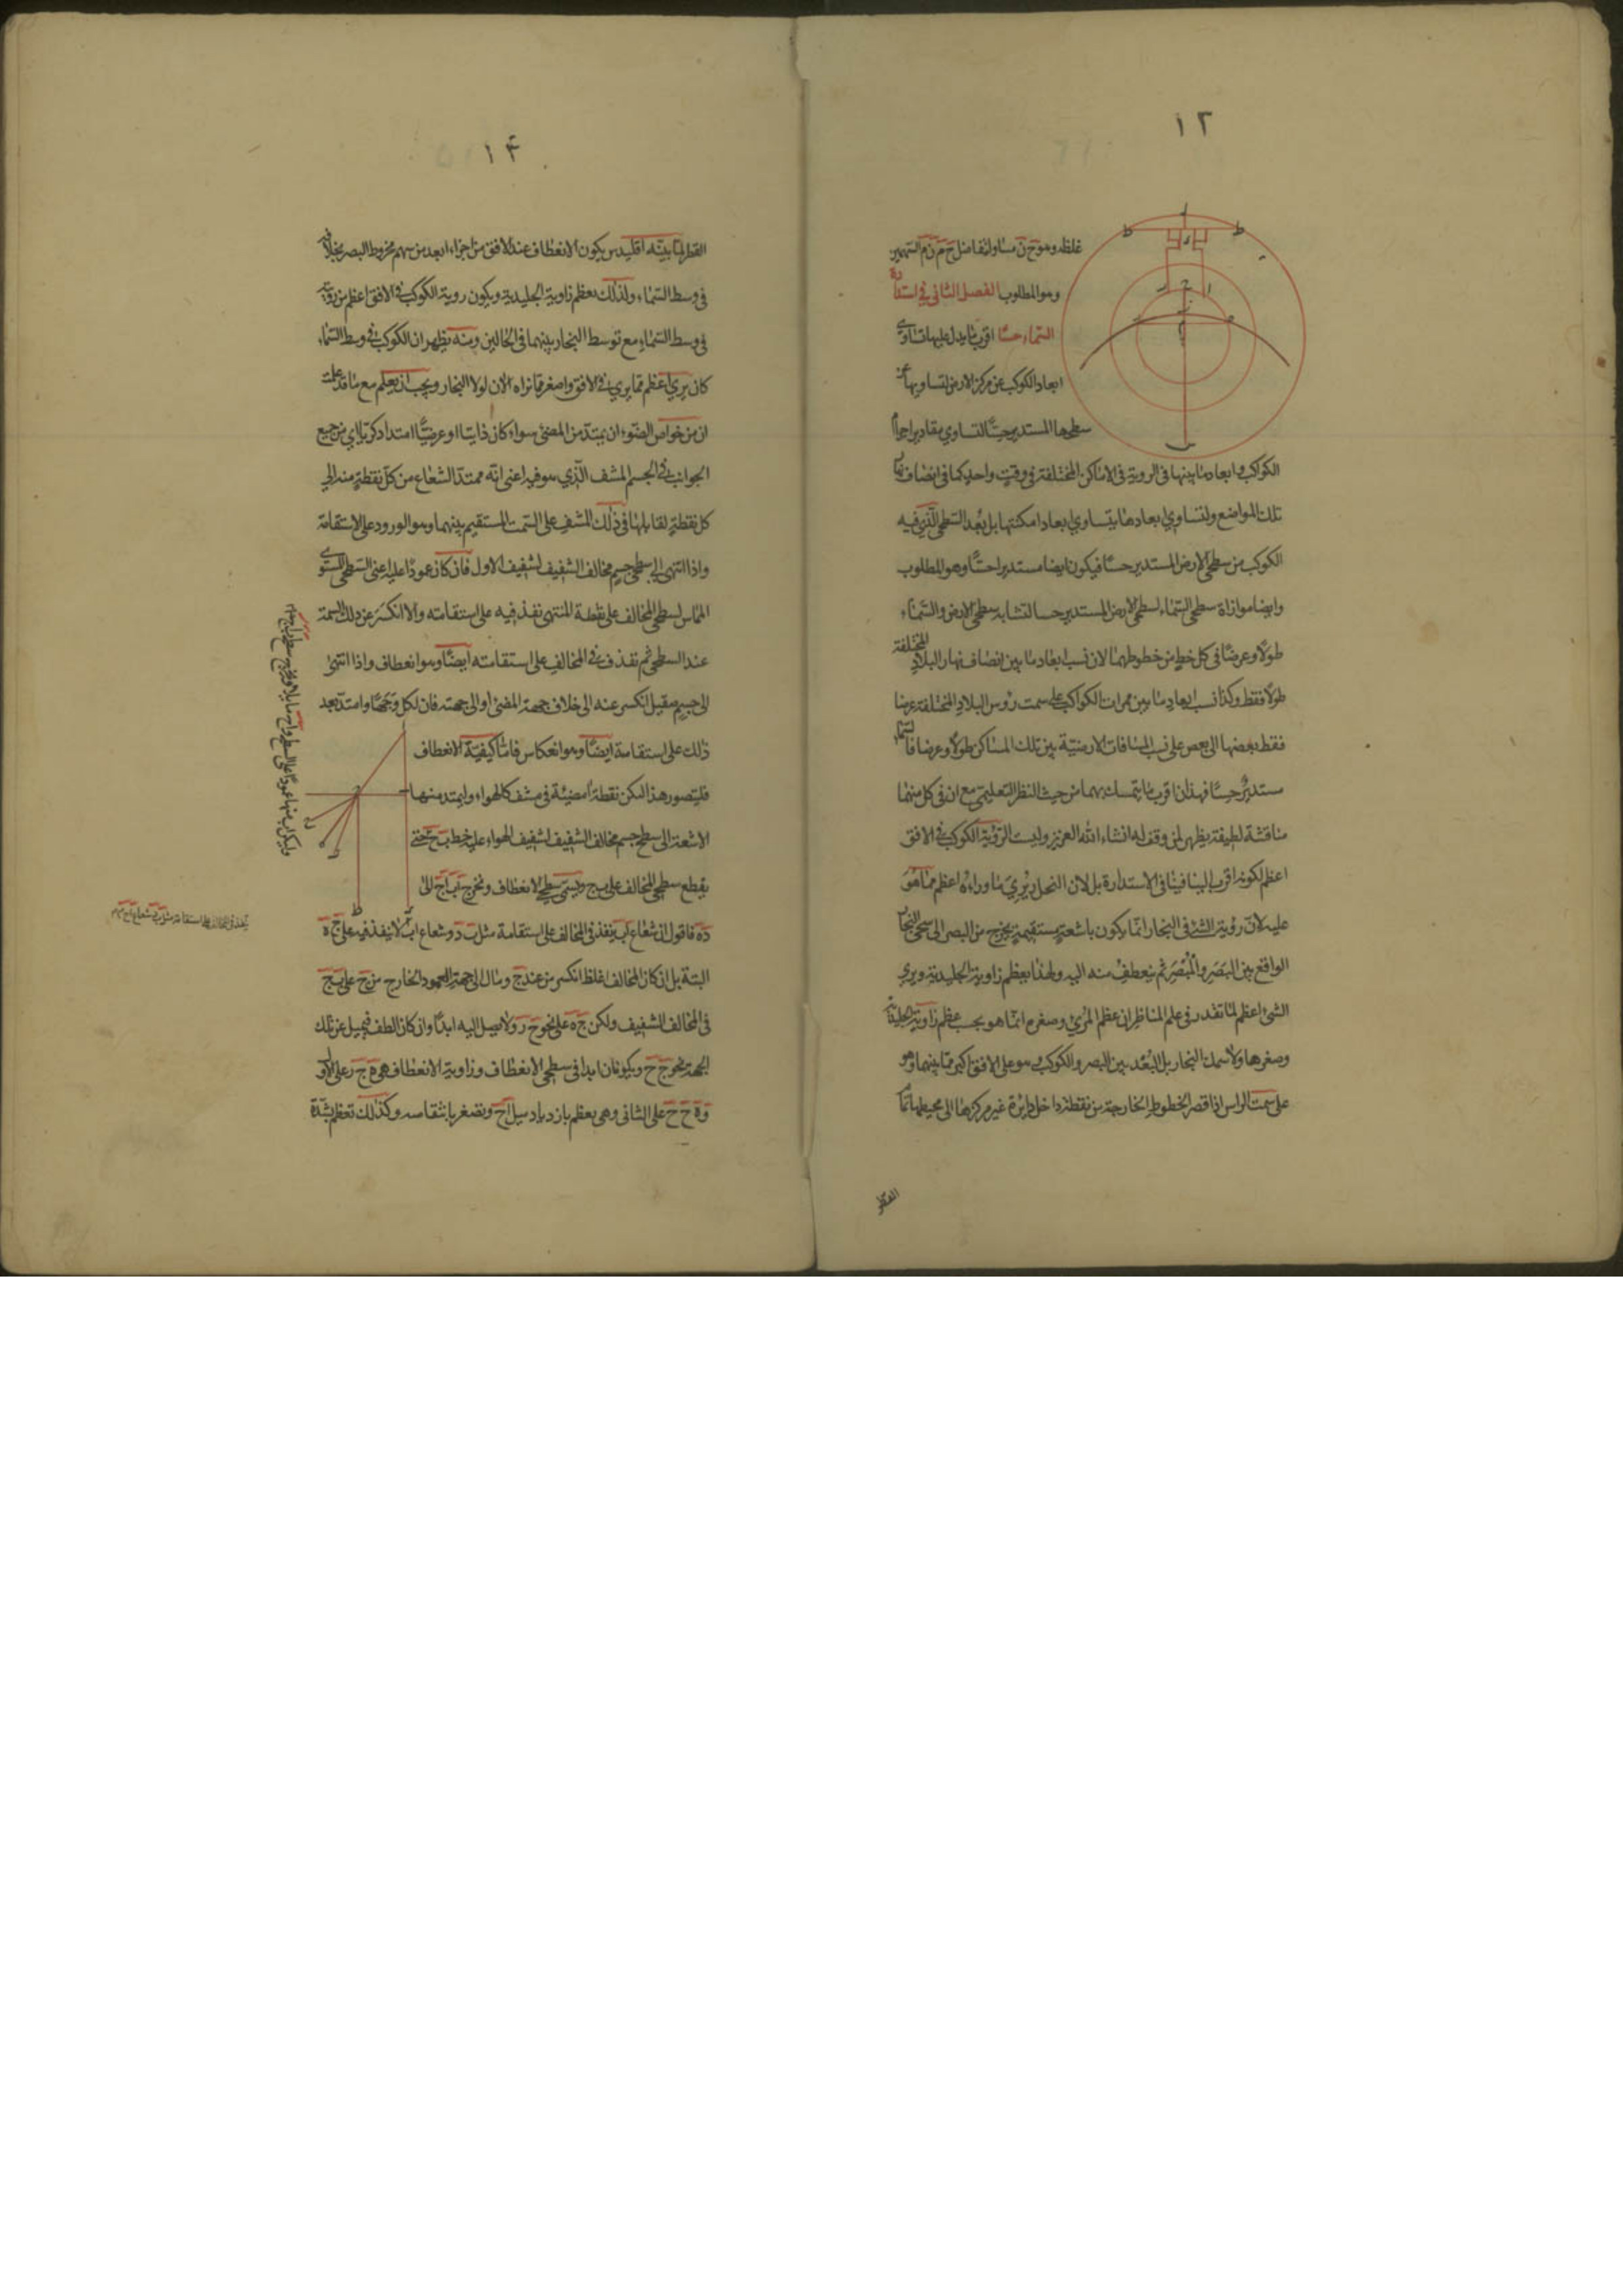 ١٢
غلظه وهو ح ن مساو لتفاضل ح م ن م السهمين
وهو المطلوب الفصل الثانى فى استدارة
السماء حسا اقرب ما يدل عليها تساوى
ابعاد الكوكب عن مركز الارض لتساويها عن
سطحها المستدير حسا لتساوي مقادير اجرام
الكواكب وابعاد ما بينها فى الروية فى الاماكن المختلفة فى وقت واحد كما فى انصاف نهار
تلك المواضع ولتساوي ابعادها يتساوي ابعاد امكنتها بل بعد السطح الذى فيه
الكوكب من سطح الارض المستدير حسا فيكون ايضا مستديرا حسا وهو المطلوب
وايضا موازاة سطح السماء لسطح الارض المستدير حسا لتشابه سطحى الارض والسماء
طولا وعرضا فى كل خط من خطوطهما لان نسب ابعاد ما بين انصاف نهار البلاد المختلفة
طولا فقط وكذا نسب ابعاد ما بين ممرات الكواكب على سمت رؤس البلاد المختلفة عرضا
فقط بعضها الى بعض على نسب المسافات الارضية بين تلك المساكن طولا وعرضا فالسماء
مستدير حسا فهذان اقرب ما يتمسك بهما من حيث النظر التعليمى مع ان فى كل منهما
مناقشة لطيفة يظهر لمن وقف له انشاء الله العزيز وليست الرؤية الكوكب فى الافق
اعظم لكونه اقرب الينا فينا فى الاستدارة بل لان البخار يري ما وراءه اعظم مما هو
عليه لان رؤية الشئ فى البخار انما يكون باشعة مستقيمة يخرج من البصر الى سطح البخار
الواقع بين البصر والمبصر ثم ينعطف منه اليه ولهذا يعظم زاوية الجليدية ويرى
الشئ اعظم لما تقدر فى علم المناظر ان عظم المرئ وصغره انما هو بحسب عظم زاوية الجليدية
وصغرها ولا سمك البخار بل البعد بين البصر والكوكب وهو على الافق اكبر مما بينهما وهو
على سمت الراس اذ اقصر الخطوط الخارجة من نقطة داخل دائرة غير مركزها الى محيطها تمام
القطر
١٤
القطر لما بينه اقليدس يكون الانعطاف عند الافق من اجزاء ابعد من سهم مخروط البصر بخلافه
فى وسط السماء ولذلك تعظم زاوية الجليدية ويكون روية الكوكب فى الافق اعظم من رؤيته
فى وسط السماء مع توسط البخار بينهما فى الحالين ومنه يظهر ان الكوكب فى وسط السماء
كان يرى اعظم مما يرى فى الافق واصغر مما نراه الآن لولا البخار ويجب ان يعلم مع ما قد علمت
ان من خواص الضوء ان يمتد من المضئ سواء كان ذاتيا او عرضيا امتداد كريا اي من جميع
الجوانب فى الجسم المشف الذي هو فيه اعنى انه ممتد الشعاع من كل نقطة منه الى
كل نقطة لقابلها فى ذلك المشف على السمت المستقيم بينهما وهو الورود على الاستقامة
واذا انتهى الى سطح جسم مخالف الشفيف لشفيف الاول فان كان عمودا عليه اعنى السطح المستوى
المماس لسطح المخالف على نقطة المنتهى نفذ فيه على استقامته والا انكسر عن ذلك السمت
عند السطح ثم نفذ فى المخالف على استقامته ايضا وهو انعطاف واذا انتهى
الى جسم صقيل انكسر عنه الى خلاف جهة المضئ او الى جهته فان لكل وجها وامتد بعد
ذلك على استقامة ايضا وهو انعكاس فاما كيفية الانعطاف
فليتصور هذا لتكن نقطة ا مضيئة فى مشف كالهواء وليمتد منها
الاشعة الى سطح جسم مخالف الشفيف لشفيف الهواء على خط ب ج حتى
يقطع سطح المخالف على ب ج ويسمى سطح الانعطاف ونخرج اب اج الى
د ه فاقول ان شعاع اب ينفذ فى المخالف على استقامة مثل ب د وشعاع اج لا ينفذ فيه على ج ه
البتة بل ان كان المخالف اغلظ انكسر من عند ج ومال الى جهة العمود الخارج من ج على ب ج
فى المخالف الشفيف ولكن ج ه على نحو ج ر ولا يصل اليه ابدا وان كان الطف فيميل عن تلك
الجهة نحو ج ح ويكونان ابدا فى سطح الانعطاف وزاوية الانعطاف هى ه ج ر على الاول
و ه ج ح على الثانى وهى يعظم بازدياد ميل اج ويصغر بانتقاصه وكذلك تعظم بشدة